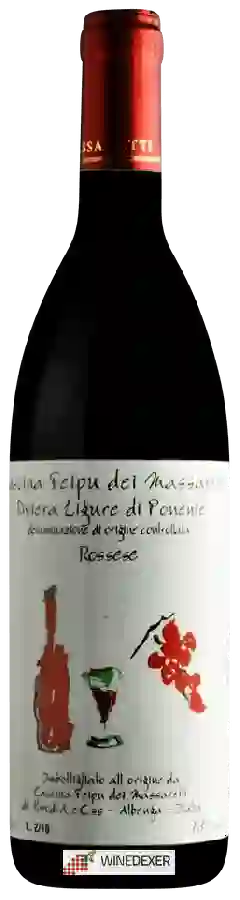 SSA TTI
Feipu dei Massa
Riviera Ligure di Ponente
denominazione di origine controllata
Rossese
Imbottigliato all'origine da
Cascina Feipu dei Massaretti
Albenga - Italia
L. 2/10
WINEDEXER